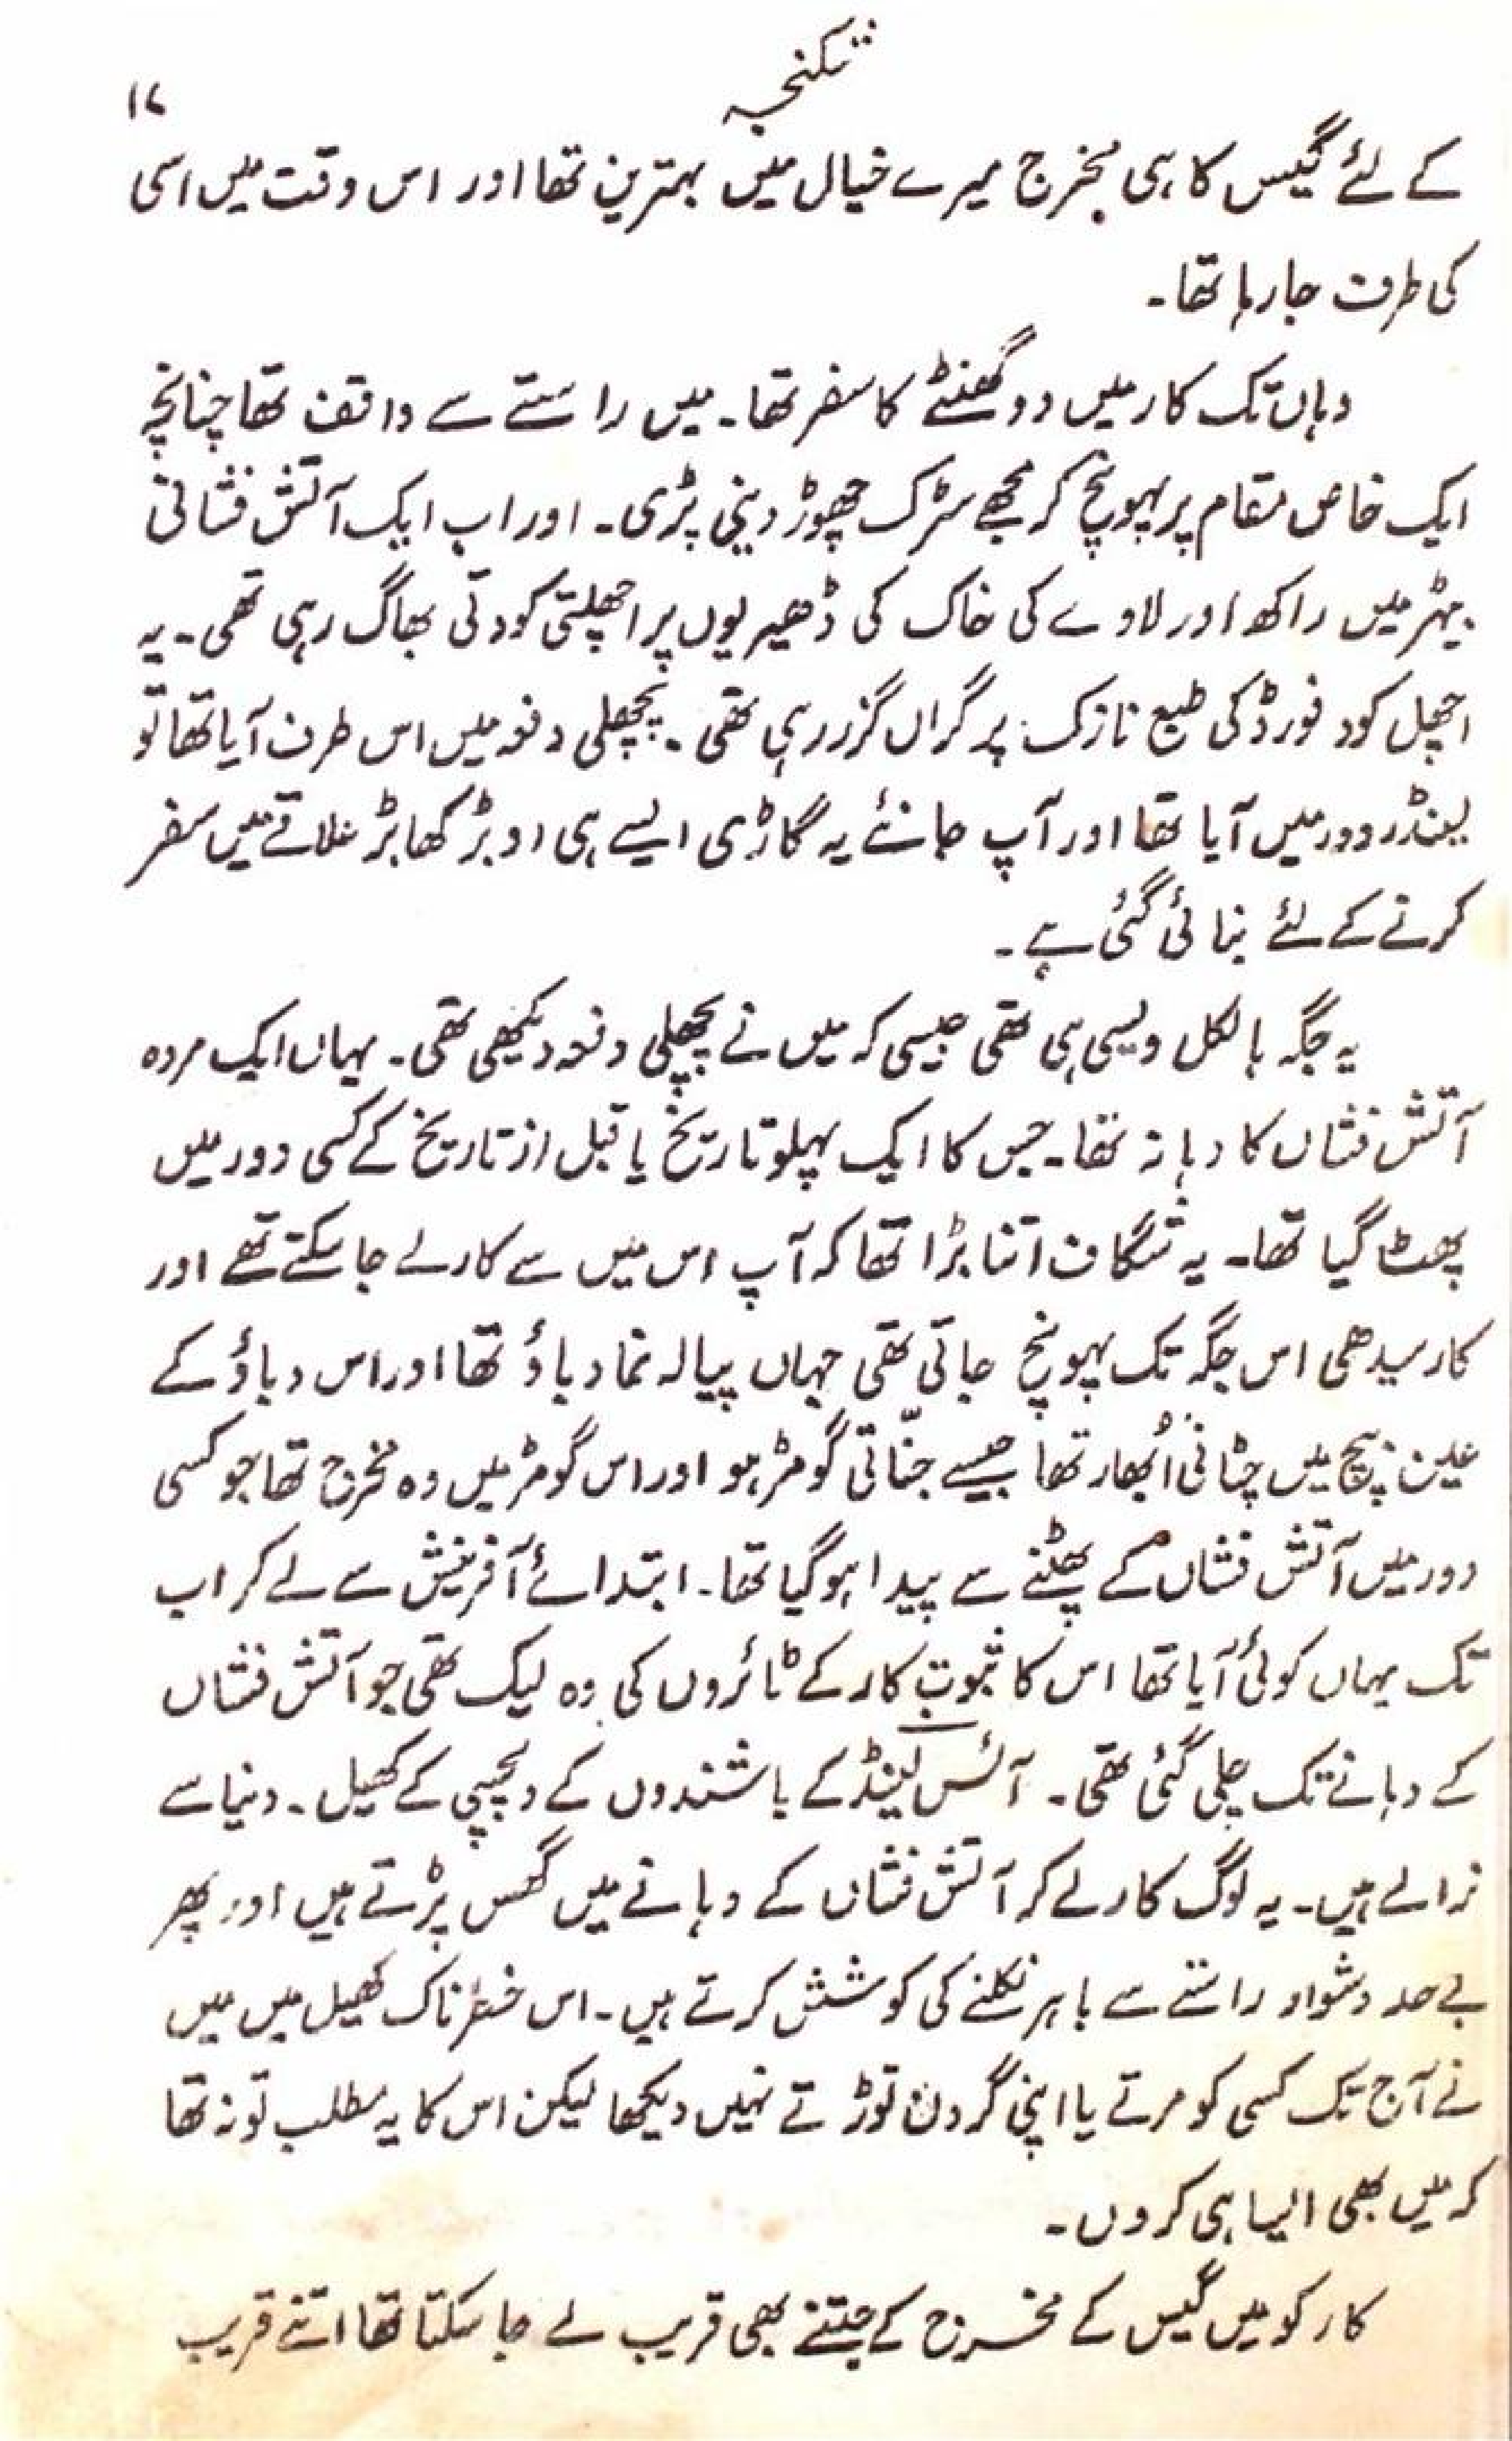 شکنجہ
۱۷
کے لئے گیس کا ہی مخرج میرے خیال میں بہترین تھا اور اس وقت میں اسی
کی طرف جا رہا تھا۔
وہاں تک کار میں دو گھنٹے کا سفر تھا۔ میں راستے سے واقف تھا چنانچہ
ایک خاص مقام پر پہونچ کر مجھے سڑک چھوڑ دینی پڑی۔ اور اب ایک آتش فشانی
بیہڑ میں راکھ اور لاوے کی خاک کی ڈھیریوں پر اچھلتی کودتی بھاگ رہی تھی۔ یہ
اچھل کود فورڈ کی طبع نازک پر گراں گزر رہی تھی۔ پچھلی دفعہ میں اس طرف آیا تھا تو
لینڈر دور میں آیا تھا اور آپ جانئے یہ گاڑی ایسے ہی اوبڑ کھابڑ علاقے میں سفر
کرنے کے لئے بنائی گئی ہے۔
یہ جگہ بالکل ویسی ہی تھی جیسی کہ میں نے پچھلی دفعہ دیکھی تھی۔ یہاں ایک مردہ
آتش فشاں کا دہانہ تھا۔ جس کا ایک پہلو تاریخ یا قبل از تاریخ کے کسی دور میں
پھٹ گیا تھا۔ یہ شگاف اتنا بڑا تھا کہ آپ اس میں سے کار لے جا سکتے تھے اور
کار سیدھی اس جگہ تک پہونچ جاتی تھی جہاں پیالہ نما دباؤ تھا اور اس دباؤ کے
عین بیچ میں چٹانی اُبھار تھا جیسے جنّاتی گومڑ ہو اور اس گومڑ میں وہ مخرج تھا جو کسی
دور میں آتش فشاں کے پھٹنے سے پیدا ہو گیا تھا۔ ابتدائے آفرینش سے لے کر اب
تک یہاں کوئی آیا تھا اس کا ثبوت کار کے ٹائروں کی وہ لیک تھی جو آتش فشاں
کے دہانے تک چلی گئی تھی۔ آئس لینڈ کے باشندوں کے دلچسپی کے کھیل۔ دنیا سے
نرالے ہیں۔ یہ لوگ کار لے کر آتش فشاں کے دہانے میں گھس پڑتے ہیں اور پھر
بے حد دشوار راستے سے باہر نکلنے کی کوشش کرتے ہیں۔ اس خطرناک کھیل میں میں
نے آج تک کسی کو مرتے یا اپنی گردن توڑتے نہیں دیکھا لیکن اس کا یہ مطلب تو نہ تھا
کہ میں بھی ایسا ہی کروں۔
کار کو میں گیس کے مخرج کے جتنے بھی قریب لے جا سکتا تھا اتنے قریب